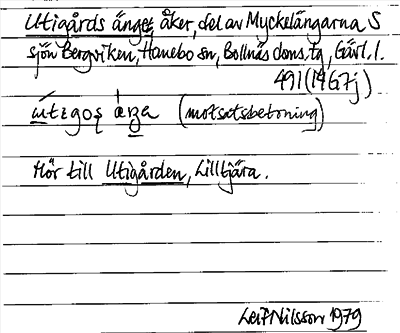 Utigårds änget, åker, del av Myckelängarna S
sjön Bergviken, Hanebo sn, Bollnäs doms.tg, Gävl. l.
491 (14G7j)
(motsatsbetoning)
Hör till Utigården, Lilltjära.
Leif Nilsson 1979